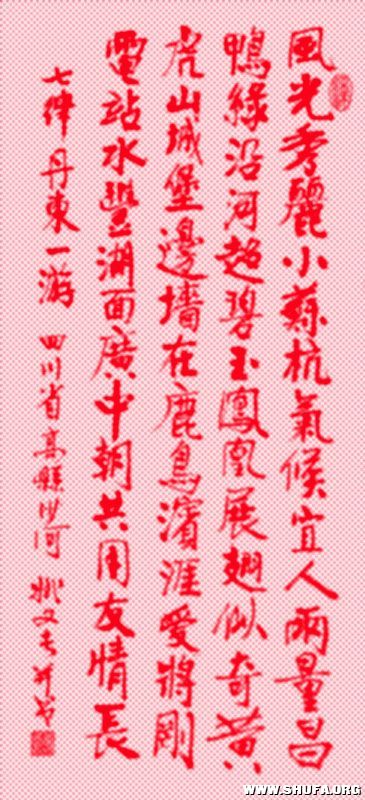 風光秀麗小蘇杭氣候宜人雨量昌
鴨綠沿河超碧玉鳳凰展翅似奇黃
虎山城堡邊墻在鹿鳥濱涯愛將剛
電站水豐湖面廣中朝共用友情長
七律丹東一游 四川省高縣沙河 姚又
WWW.SHUFA.ORG